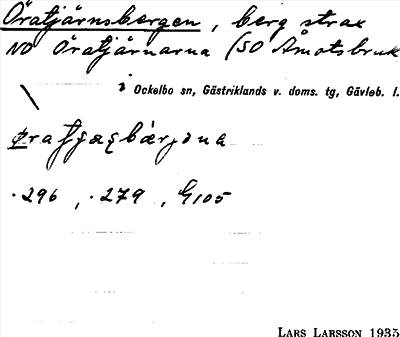 Öratjärnsbergen, berg strax
NO Öratjärnarna (SO Åmotsbruk
i Ockelbo sn, Gästriklands v. doms. tg, Gävleb. l.
.296, .279, G105
LARS LARSSON 1935